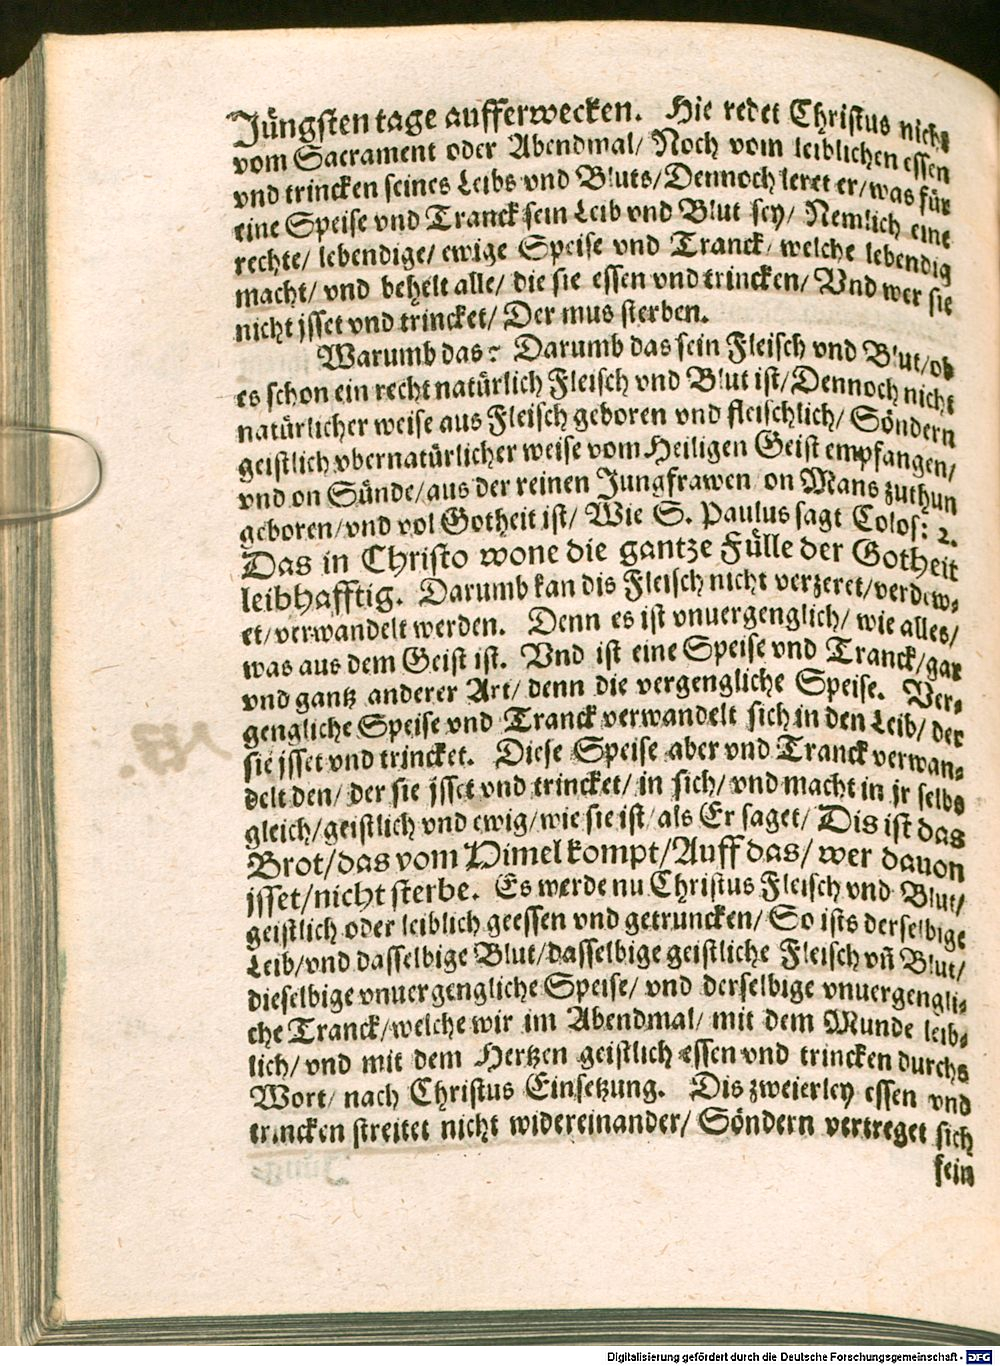 Jüngsten tage aufferwecken. Hie redet Christus nicht
vom Sacrament oder Abendmal/ Noch vom leiblichen essen
vnd trincken seines Leibs vnd Bluts/ Dennoch leret er/ was für
eine Speise vnd Tranck sein Leib vnd Blut sey/ Nemlich eine
rechte/ lebendige/ ewige Speise vnd Tranck/ welche lebendig
macht/ vnd behelt alle/ die sie essen vnd trincken/ Vnd wer sie
nicht jsset vnd trincket/ Der mus sterben.
Warumb das? Darumb das sein Fleisch vnd Blut/ ob
es schon ein recht natürlich Fleisch vnd Blut ist/ Dennoch nicht
natürlicher weise aus Fleisch geboren vnd fleischlich/ Söndern
geistlich vbernatürlicher weise vom Heiligen Geist empfangen/
vnd on Sünde/ aus der reinen Jungfrawen on Mans zuthun
geboren/ vnd vol Gotheit ist/ Wie S. Paulus sagt Colos: 2.
Das in Christo wone die gantze Fülle der Gotheit
leibhafftig. Darumb kan dis Fleisch nicht verzeret/ verdew-
et/ verwandelt werden. Denn es ist vnuergenglich/ wie alles/
was aus dem Geist ist. Vnd ist eine Speise vnd Tranck/ gar
vnd gantz anderer Art/ denn die vergengliche Speise. Ver-
gengliche Speise vnd Tranck verwandelt sich in den Leib/ der
sie jsset vnd trincket. Diese Speise aber vnd Tranck verwan-
delt den/ der sie jsset vnd trincket/ in sich/ vnd macht in jr selbs
gleich/ geistlich vnd ewig/ wie sie ist/ als Er saget/ Dis ist das
Brot/ das vom Himel kompt/ Auff das/ wer dauon
jsset/ nicht sterbe. Es werde nu Christus Fleisch vnd Blut/
geistlich oder leiblich geessen vnd getruncken/ So ists derselbige
Leib/ vnd dasselbige Blut/ dasselbige geistliche Fleisch vñ Blut/
dieselbige vnuergengliche Speise/ vnd derselbige vnuergengli-
che Tranck/ welche wir im Abendmal/ mit dem Munde leib-
lich/ vnd mit dem Hertzen geistlich essen vnd trincken durchs
Wort/ nach Christus Einsetzung. Dis zweierley essen vnd
trincken streitet nicht widereinander/ Söndern vertreget sich
sein
Digitalisierung gefördert durch die Deutsche Forschungsgemeinschaft - DFG